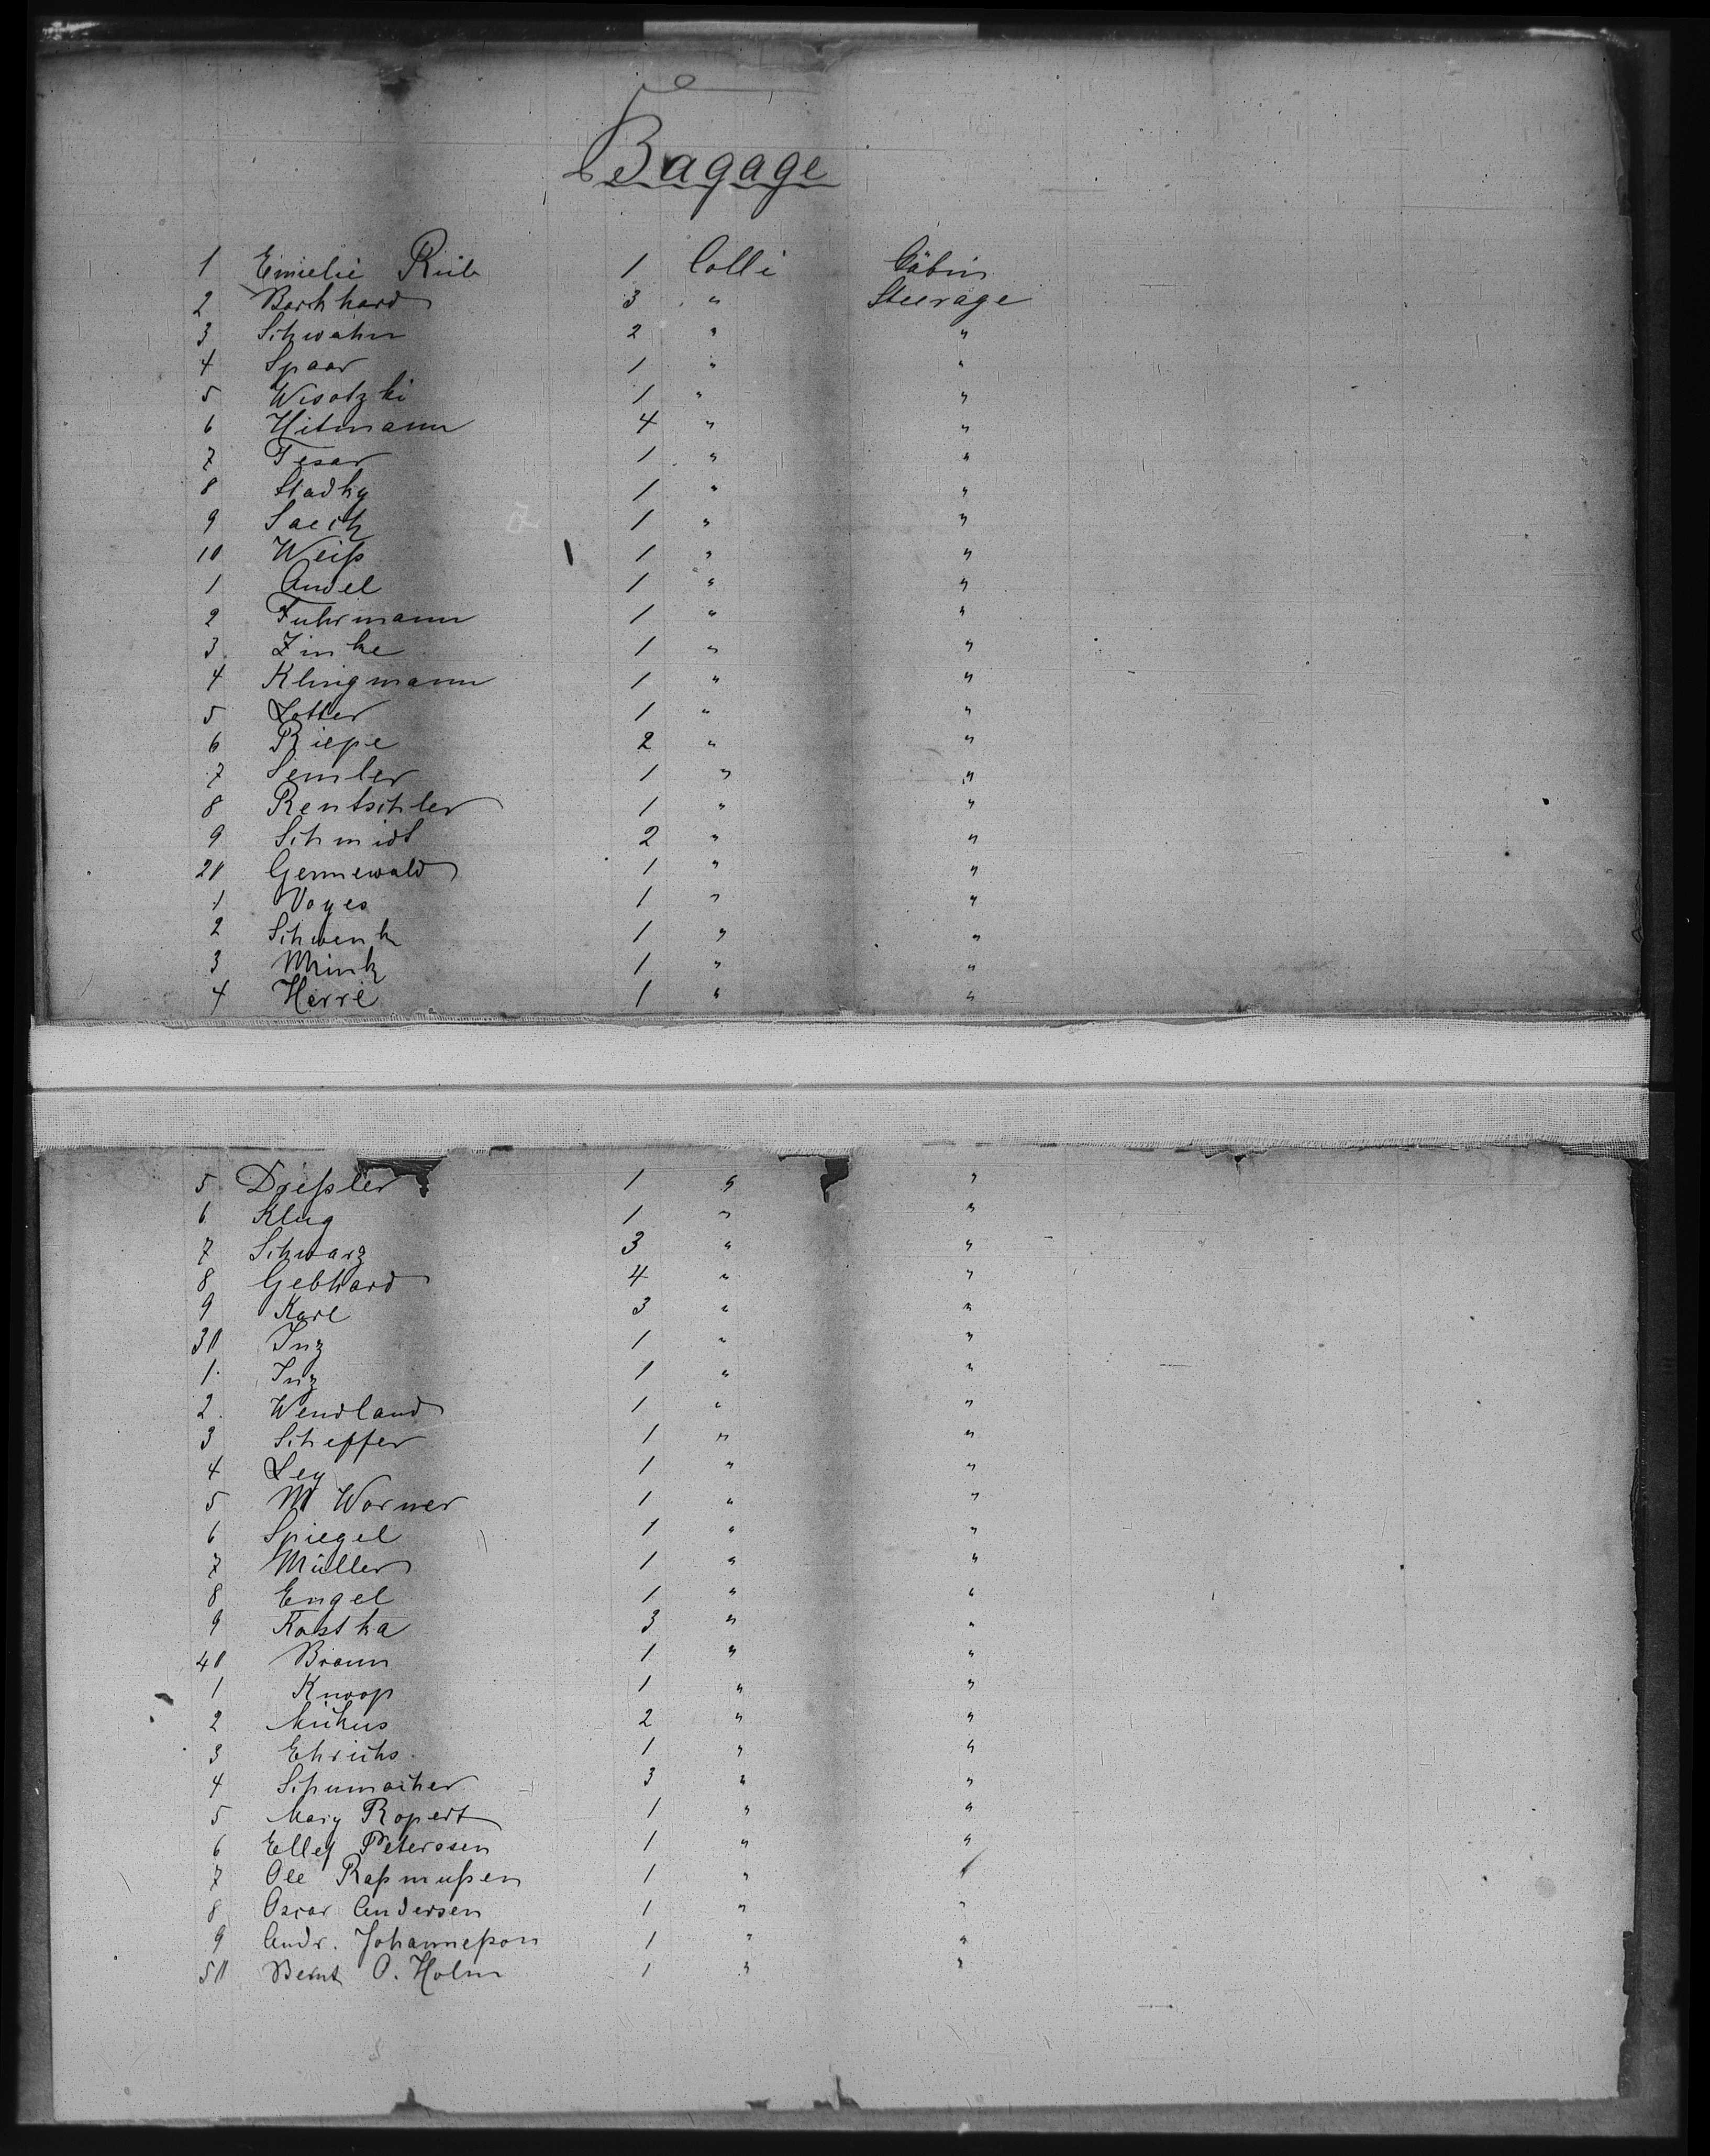 Bagage
1 Emielie Rüb 1 Colli Cäbin
2 Borkhard 3 " Steerage
3 Schwahn 2 " "
4 Spaar 1 " "
5 Wisotzki 1 " "
6 Hitmann 4 " "
7 Tesar 1 " "
8 1 " "
9 1 " "
10 Weiß 1 " "
1 Andel 1 " "
2 Fuhrmann 1 " "
3 Zinke 1 " "
4 Klingmann 1 " "
5 Lotter 1 " "
6 Riepe 2 " "
7 Semler 1 " "
8 Rentschler 1 " "
9 Schmidt 2 " "
20 Gennewald 1 " "
1 Voges 1 " "
2 Schwenk 1 " "
3 Mink 1 " "
4 Herre 1 " "
5 Dreßler 1 " "
6 Klug 1 " "
7 Schwarz 3 " "
8 Gebhard 4 " "
9 Karl 3 " "
30 Inz 1 " "
1 Inz 1 " "
2 Wendland 1 " "
3 Scheffer 1 " "
4 Ley 1 " "
5 M Worner 1 " "
6 Spiegel 1 " "
7 Müller 1 " "
8 Engel 1 " "
9 Kostka 3 " "
40 Braun 1 " "
1 Knoop 1 " "
2 Mickus 2 " "
3 Ehrichs 1 " "
4 Schumacher 3 " "
5 Mary Ropert 1 " "
6 Ellef Peterssen 1 " "
7 Ole Raßmußen 1 " "
8 Oscar Andersen 1 " "
9 Andr. Johanneßon 1 " "
50 Bernt O. Holm 1 " "